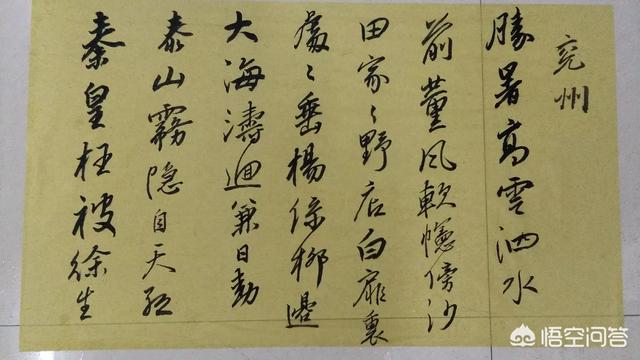 兖州
勝暑高雲泗水
前薰风軟幰傍沙
田家々野店白雁裏
處々垂楊柳邊
大海濤迴兼日動
泰山霧隐自天
秦皇枉被徐生
悟空问答